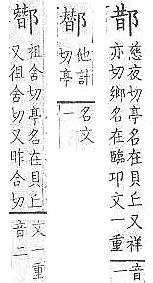 慈夜切亭名在貝丘又祥
亦切鄉名在臨邛文一重
音一
他計
切亭
名文
一
祖舍切亭名在貝丘
又徂舍切又昨合切
文一重
音二